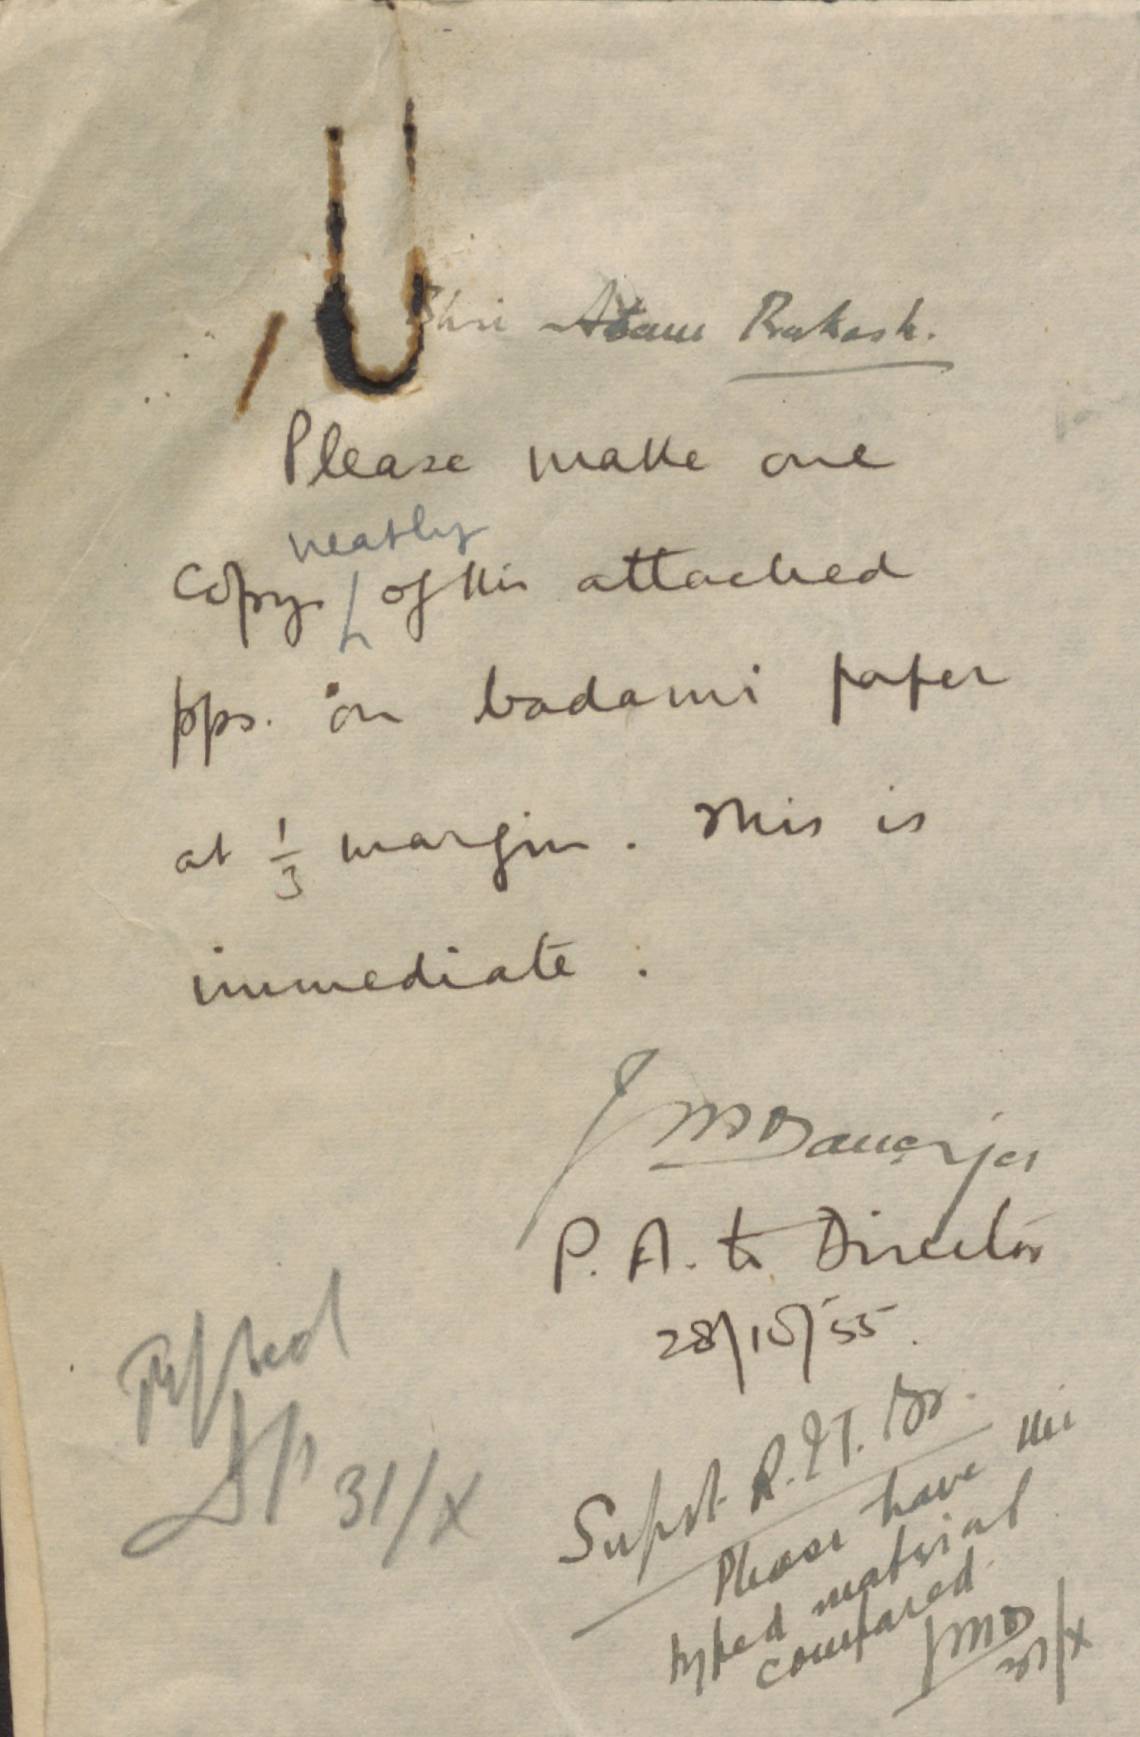 Shri Atam Prakash.
Please make one
neatly
copy of this attached
pps. on badami paper
at 1/3 margin. This is
immediate.
JMBanerjee
P. A. to Director
28/10/55.
Typed
AP 31/X
Supdt R.&T. Br.
Please have this
typed material
compared.
JMB
31/X